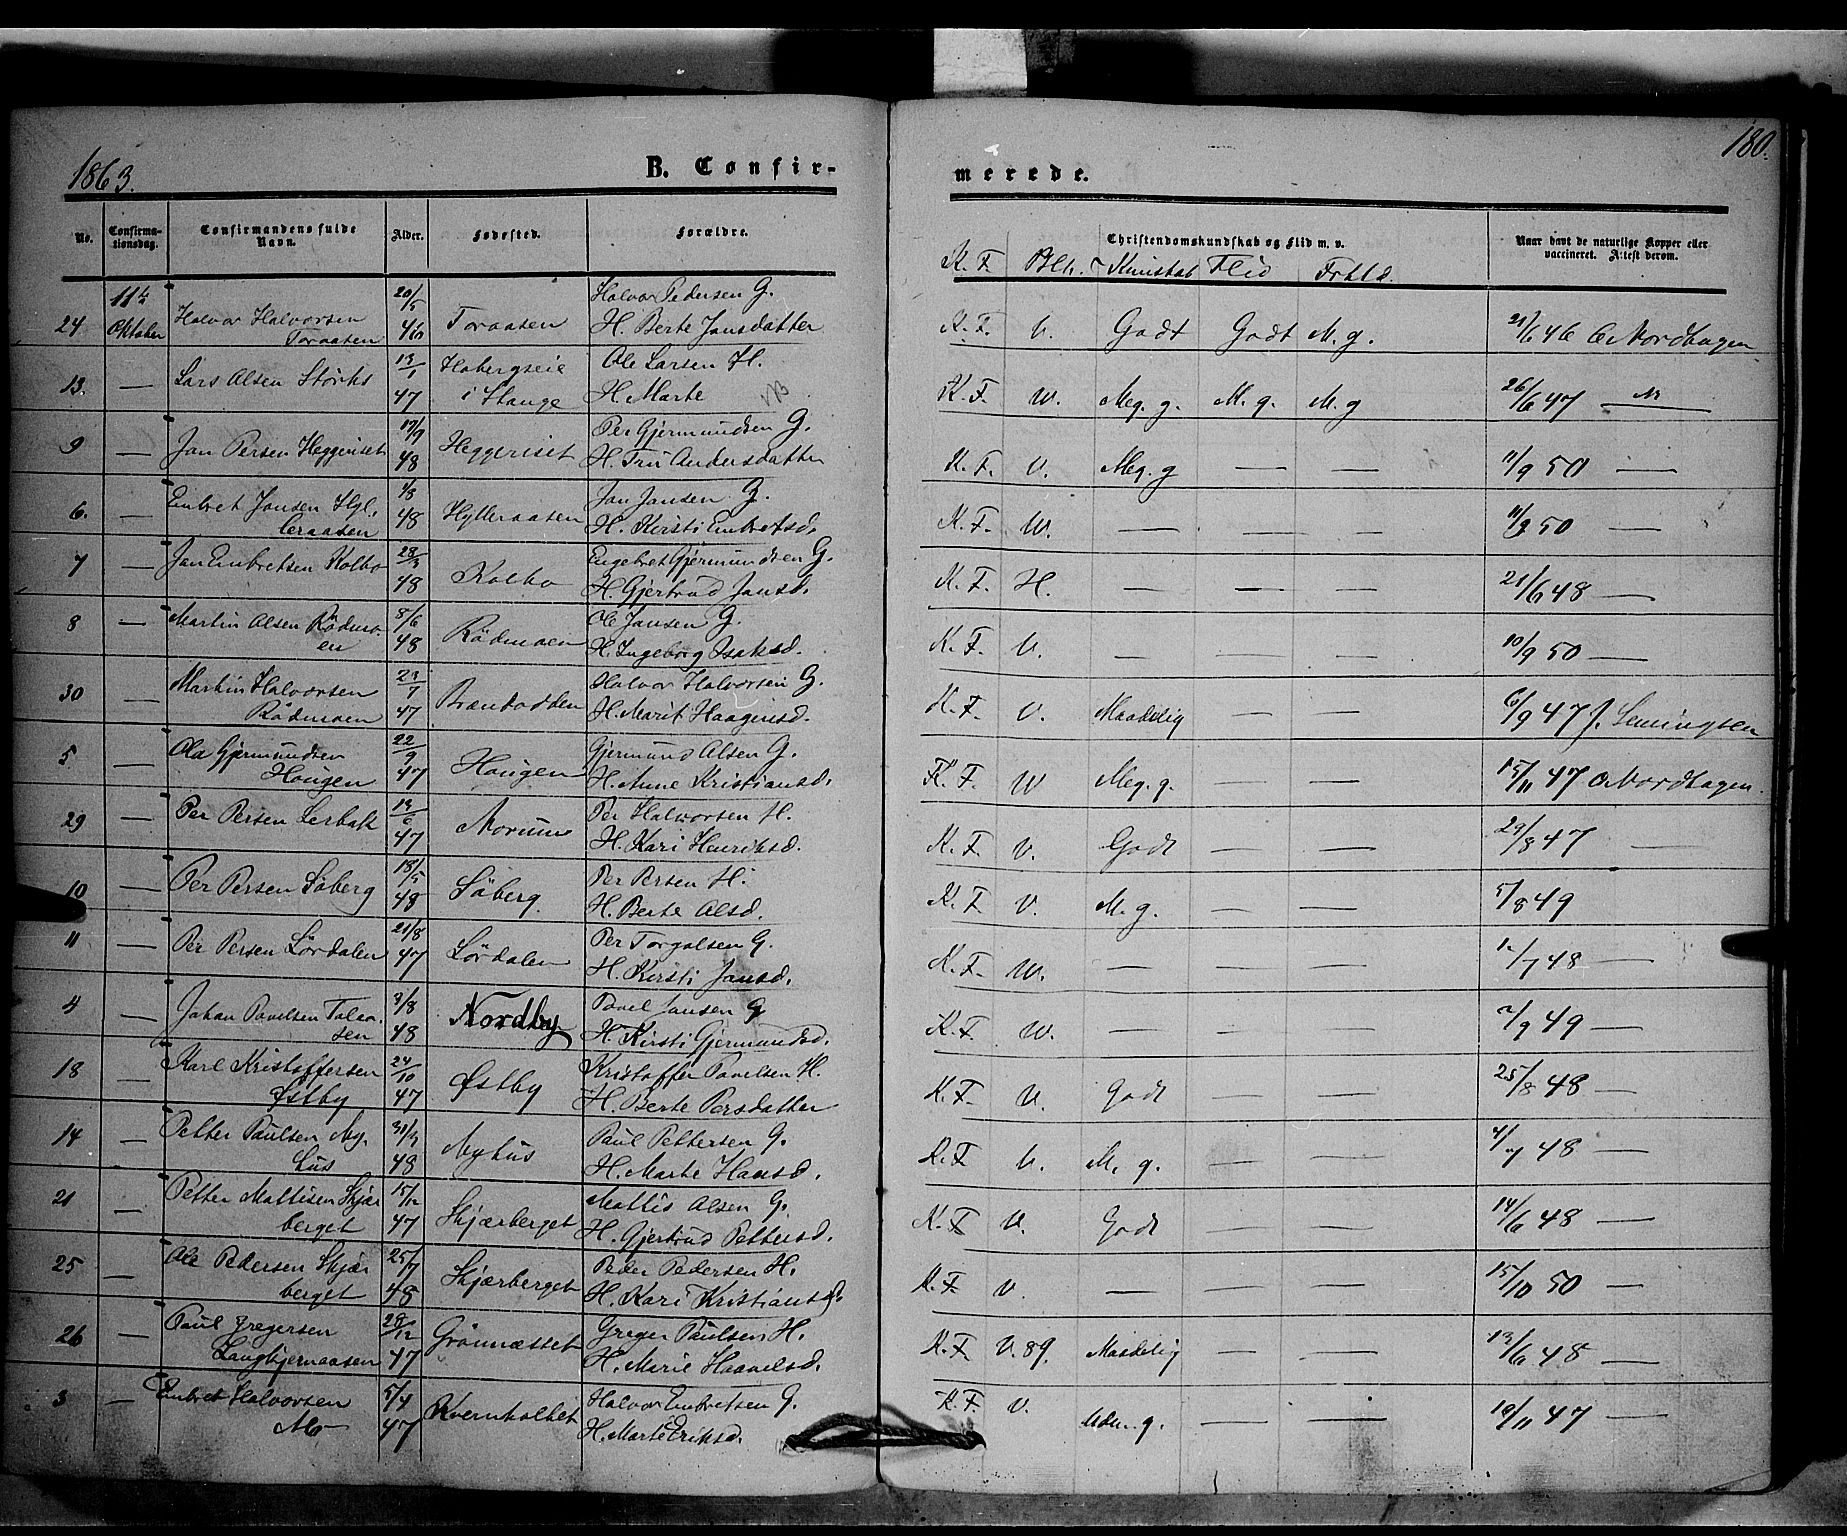 1863.
B. Confir-
merede.
180.
No.
Confirma-
tionsdag.
Confirmandens fulde
Navn.
Alder.
Fødested.
Forældre.
Christendomskundskab og Flid m. v.
K. F. Blh. Kundskab Flid Frhld.
Naar havt de naturlige Kopper eller
vaccineret. Attest derom.
24 11te Oktober Halvor Halvorsen Toraasen 20/5 46 Toraasen Halvor Pedersen G. H. Berte Jansdatter K. F. V. Godt Godt M. g. 21/6 46 O Nordhagen
13. — Lars Olsen Störks 13/1 47 Habergseie i Stange Ole Larsen H. H. Marte K. F. W. Meg. g. M. g. M. g 26/6 47 —
9 — Jan Persen Heggeriset 17/9 48 Heggeriset Per Gjermundsen G. H. Tru Andersdatter K. F. V. Meg. g — — 11/9 50 —
6. — Embret Jansen Hylleraasen 1/8 48 Hylleraasen Jan Jansen G. H. Kirsti Embretsd. K. F. W. — — — 11/9 50 —
7 — Jan Embretsen Kolbo 28/3 48 Kolbo Engebret Gjermundsen G. H. Gjertrud Jansd. K. F. H. — — — 21/6 48 —
8 — Martin Olsen Rödmoen 8/6 48 Rödmoen Ole Jansen G. H. Ingeborg Isaksd. K. F. V. — — — 10/9 50 —
30 Martin Halvorsen Rödmoen 23/7 47 Brændodden Halvor Halvorsen G. H. Marit Haagensd. K. F. V. Maadelig — — 6/9 47 J. Lemingsen
5 — Ola Gjermundsen Haugen 22/9 47 Haugen Gjermund Olsen G. H. Anne Kristiansd. K. F. W Meg. g. — — 15/11 47 O Nordhagen.
29 — Per Persen Lerbak 13/6 47 Morumo Per Halvorsen H. H. Kari Henriksd. K. F V. Godt — — 29/8 47 —
10 — Per Persen Söberg 18/5 48 Söberg Per Persen H. H. Berte Olsd. K. F V. M. g. — — 5/8 49
11 — Per Persen Lördalen 21/8 47 Lördalen Per Torgalsen G. H. Kirsti Jansd. K. F. W. — — — 12/7 48 —
4 — Johan Pavelsen Talaasen 8/8 48 Nordby Pavel Jansen G H. Kirsti Gjermundsd. K. F W. — — — 2/9 49 —
18 — Karl Kristoffersen Østby 24/10 47 Østby Kristoffer Pavelsen H. H. Berte Persdatter K. F V. Godt — — 25/8 48 —
14 — Petter Paulsen Myhus 31/3 48 Myhus Paul Pettersen G. H. Marte Hansd. K. F V. M. g. — — 4/7 48 —
21 — Petter Mattisen Skjærberget 15/12 47 Skjærberget Mattis Olsen G. H. Gjertrud Pettersd. K. F V. Godt — — 14/6 48 —
25 — Ole Pedersen Skjærberget 25/7 48 Skjærberget Peder Pedersen H. H. Kari Kristiansd. K. F V. — — — 15/10 50 —
26 — Paul Gregersen Langbjernaasen 28/12 47 Grönnæsset Greger Paulsen H. H. Marie Haavelsd. K. F V. 89. Maadelig — — 13/6 48 —
3 — Embret Halvorsen Mo 5/4 47 Kvernholtet Halvor Embretsen G. H. Marte Eriksd. K. F V. Udm. g. — — 19/11 47 —